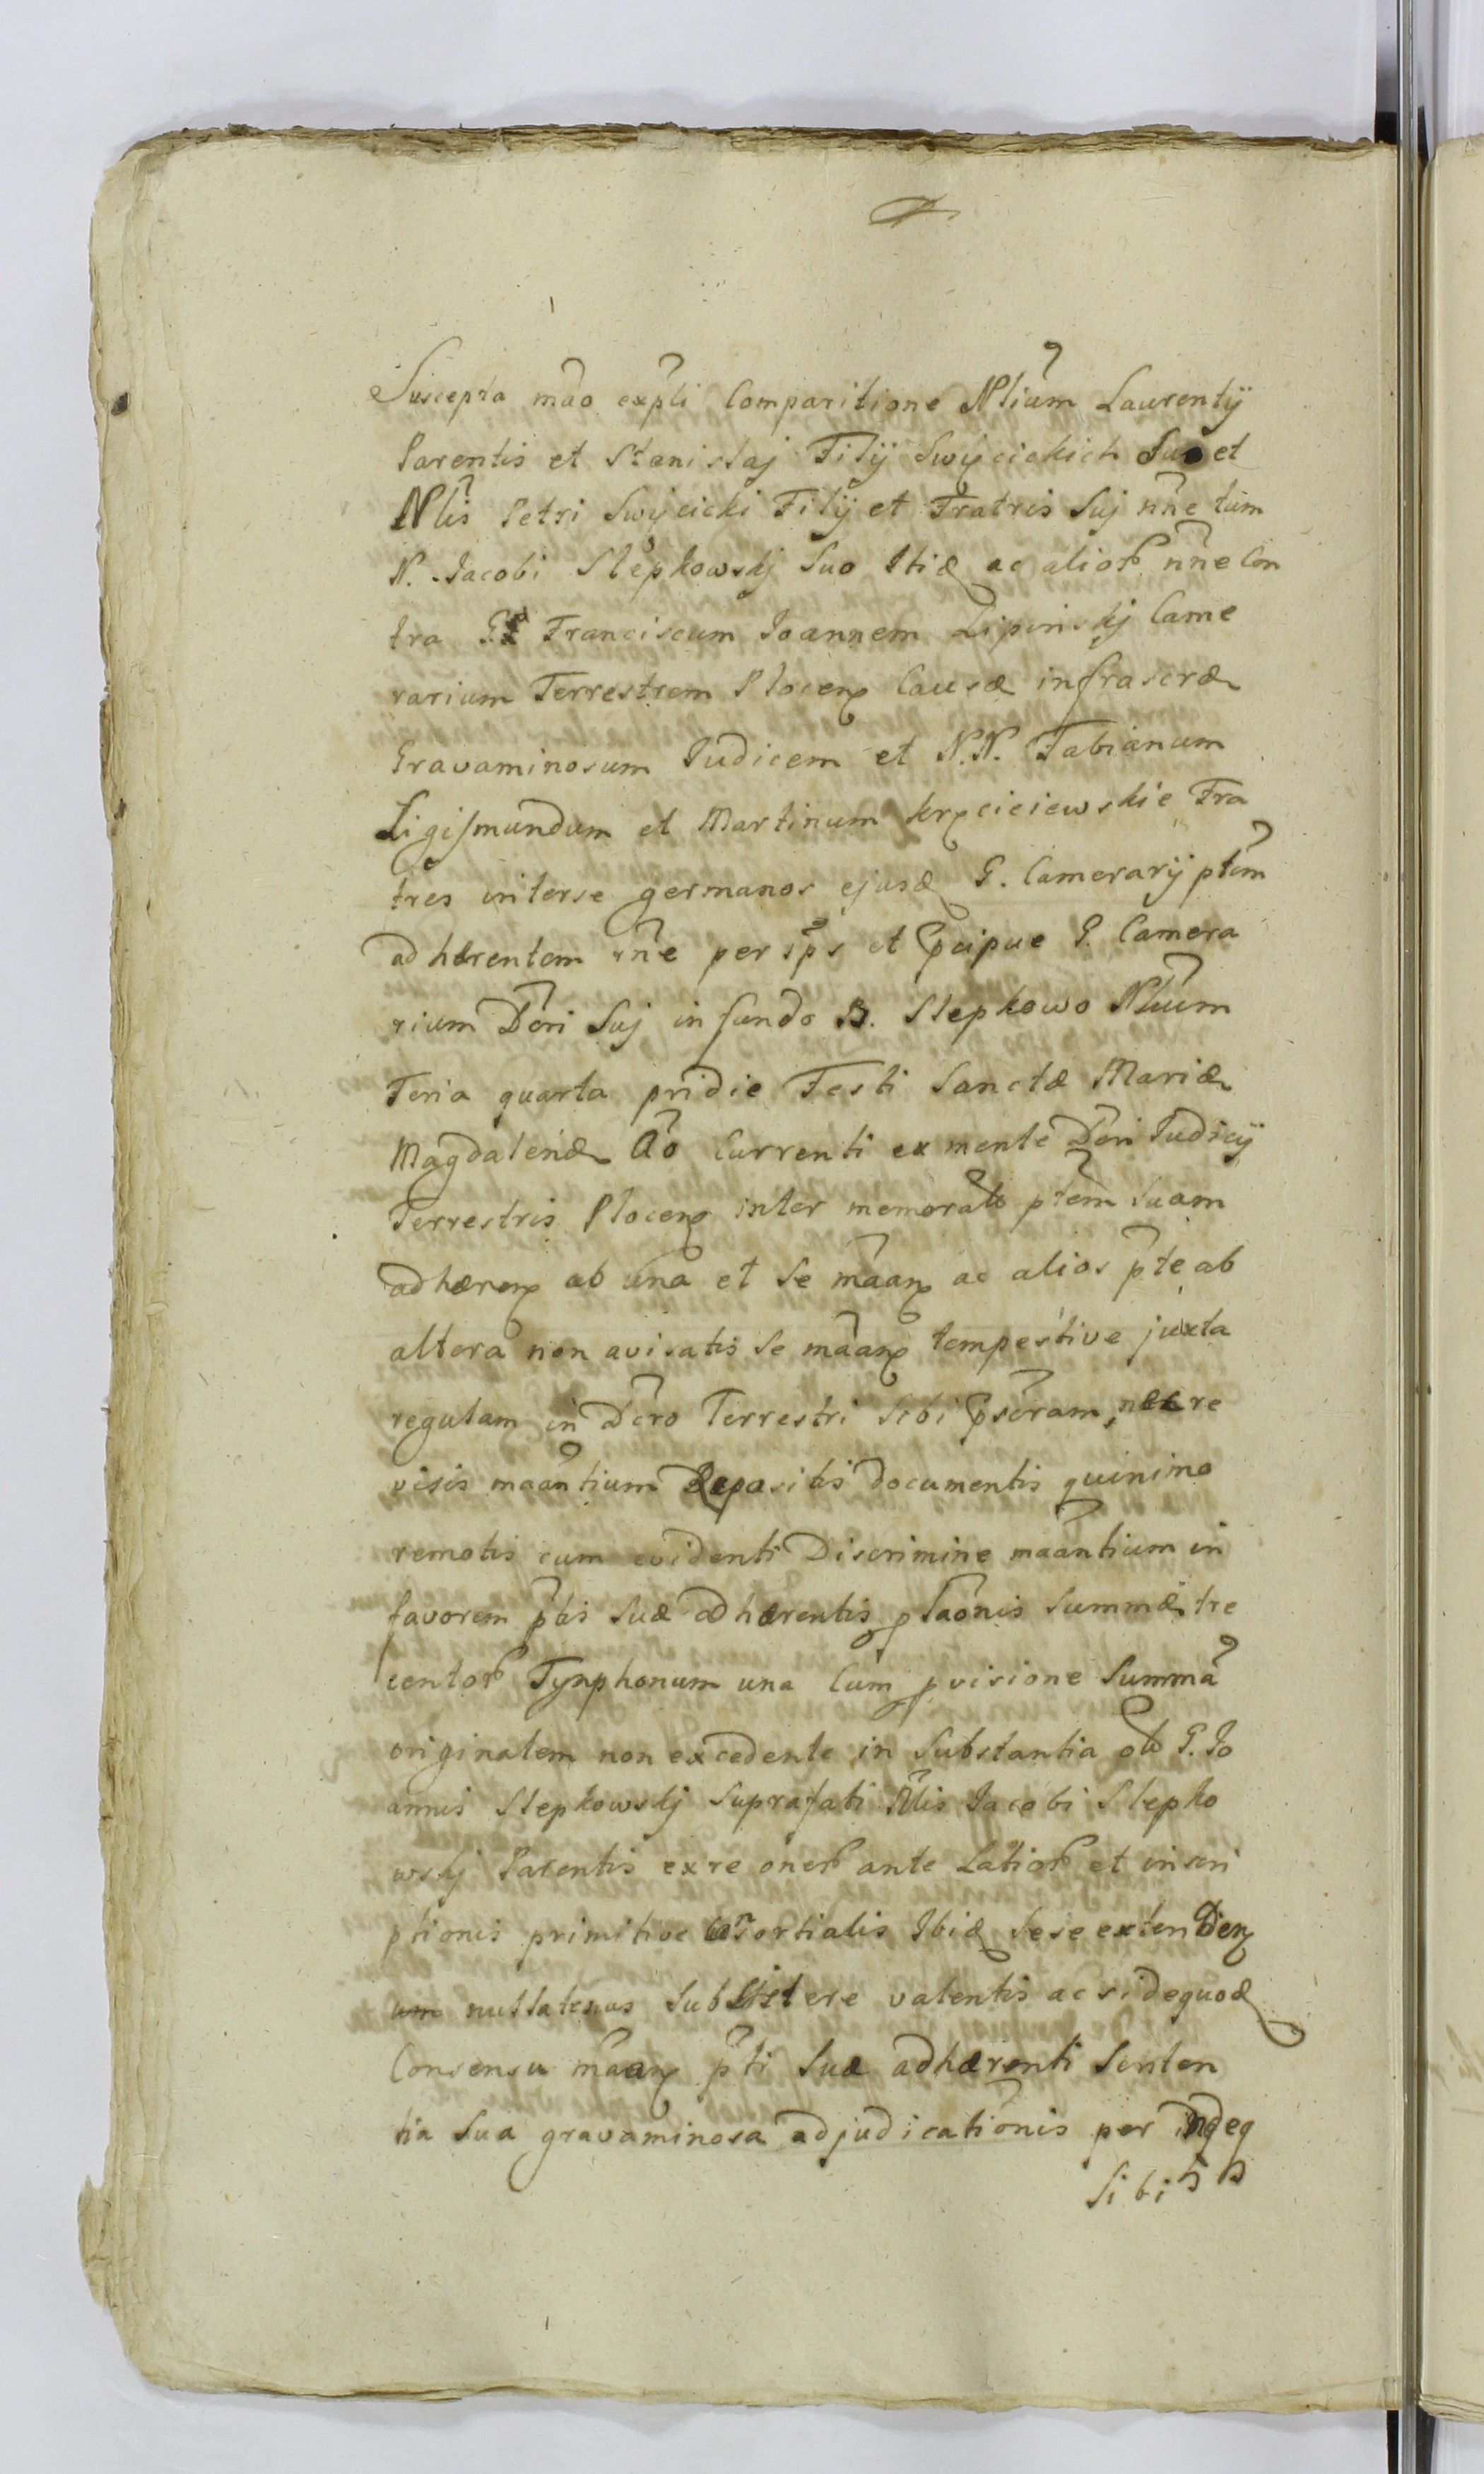 Suscepta mão exp̃ti Comparitione Nlium̃ Laurentij
Parentis et Stanislaj Filij Swięcickich Suo et
Nl̃is Petri Swięcicki Filij et Fratris Suj nñe tum
N. Jacobi Slepkowskj Suo Itid ac alior nñe Con
tra Gd Franciscum Joannem Lipinskj Came
rarium Terrestrem Plocen Causæ infrascræ
Gravaminosum Judicem et N.N. Fabianum
Zigismundum et Martinum Fra
tres interse germanos ejusd G. Camerarij ptem̃
adhærentem nñe per ip̃s et p̃cipue G. Camera
rium Dc̃ri Suj in fundo B. Slepkowo Nliũm
Feria quarta pridie Festi Sanctæ Mariæ
Magdalenæ Aõ Currenti ex mente Dc̃ri Judicij
Terrestris Plocen inter memorat ptem̃ Suam
adhæren ab una et Se mãan ac alios p̃te ab
altera non avisatis Se mãan tempestive juxta
regulam in Dc̃ro Terrestri Sibi p̃scram, nec re
visis maãntium Repositis documentis quinimo
remotis cum evidenti Discrimine maãntium in
favorem p̃tis Suæ adhærentis Summæ tre
centor Tynphonum una Cum pvisione Summã
originalem non excedente in Substantia olt G. Jo
annis Slepkowskj Suprafati Nl̃is Jacobi Slepko
wskj Parentis exre oner ante Latior et inscri
ptionis primitivæ Consortialis Ibid Sese exten Dien
um nullatenus Subsistere valentis ac videquod
Consensu mãan p̃ti Suæ adhærenti Senten
tia Sua gravaminosa adjudicationis per indeq
Sibi